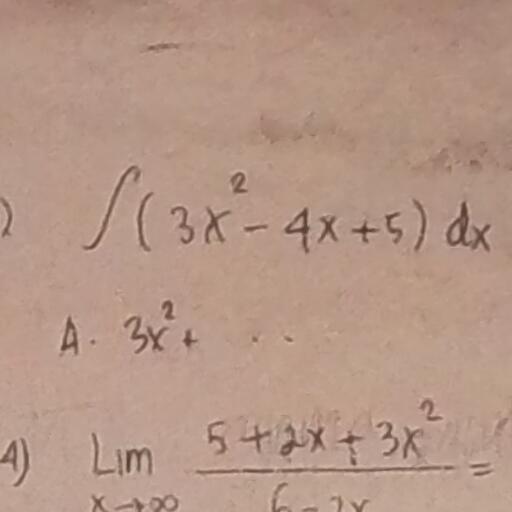 ) ∫(3x² - 4x + 5) dx
A. 3x² + ..
4) Lim x→∞ (5 + 2x + 3x²) / =